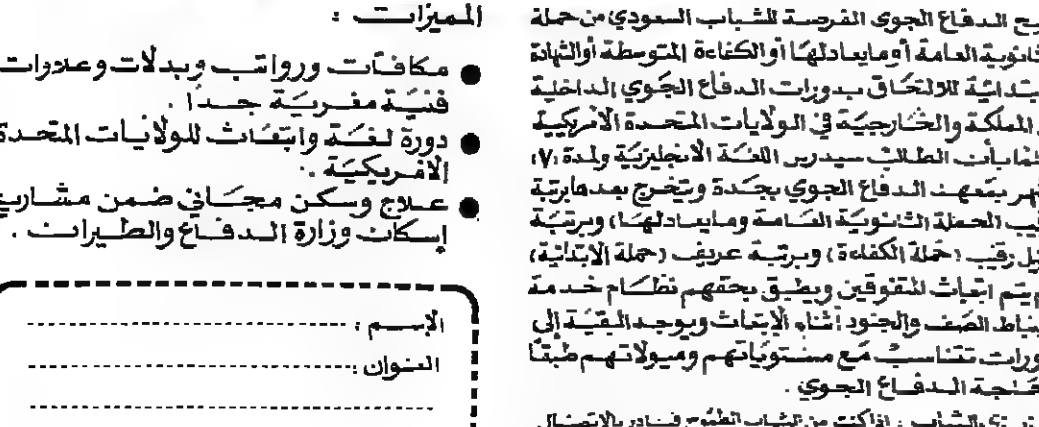 يح الدفاع الجوى الفرصة للشباب السعودي من حملة
ثانوية العامة أومايعادلها أو الكفاءة المتوسطة أوالشهادة
بتدائية للالتحاق بدورات الدفاع الجوي الداخلية
المملكة والخارجية في الولايات المتحدة الأمريكية
لمابأن الطالب سيدرس اللغة الانجليزية ولمدة (٧)
هر بمعهد الدفاع الجوي بجدة ويتخرج بعدها برتبة
يب الحملة الثانوية العامة ومايعادلها) وبرتبة
يل رقيب (حملة الكفاءة) وبرتبة عريف (حملة الابتدائية)
م يتم ابتعاث المتفوقين ويطبق بحقهم نظام خدمة
باط الصف والجنود أثناء الابتعاث ويوجد البقية إلى
ورات تتناسب مع مستوياتهم وميولاتهم طبقًا
الدفاع الجوي .
الشاب : اذا كنت من الشباب الطموح فبادر بالاتصال
المميزات :
● مكافآت ورواتب وبدلات وعلاوات
فنية مغرية جدا .
● دورة لغة وابتعاث للولايات المتحدة
الأمريكية .
● علاج وسكن مجاني ضمن مشاريع
إسكان وزارة الدفاع والطيران .
الإسم :
العنوان :